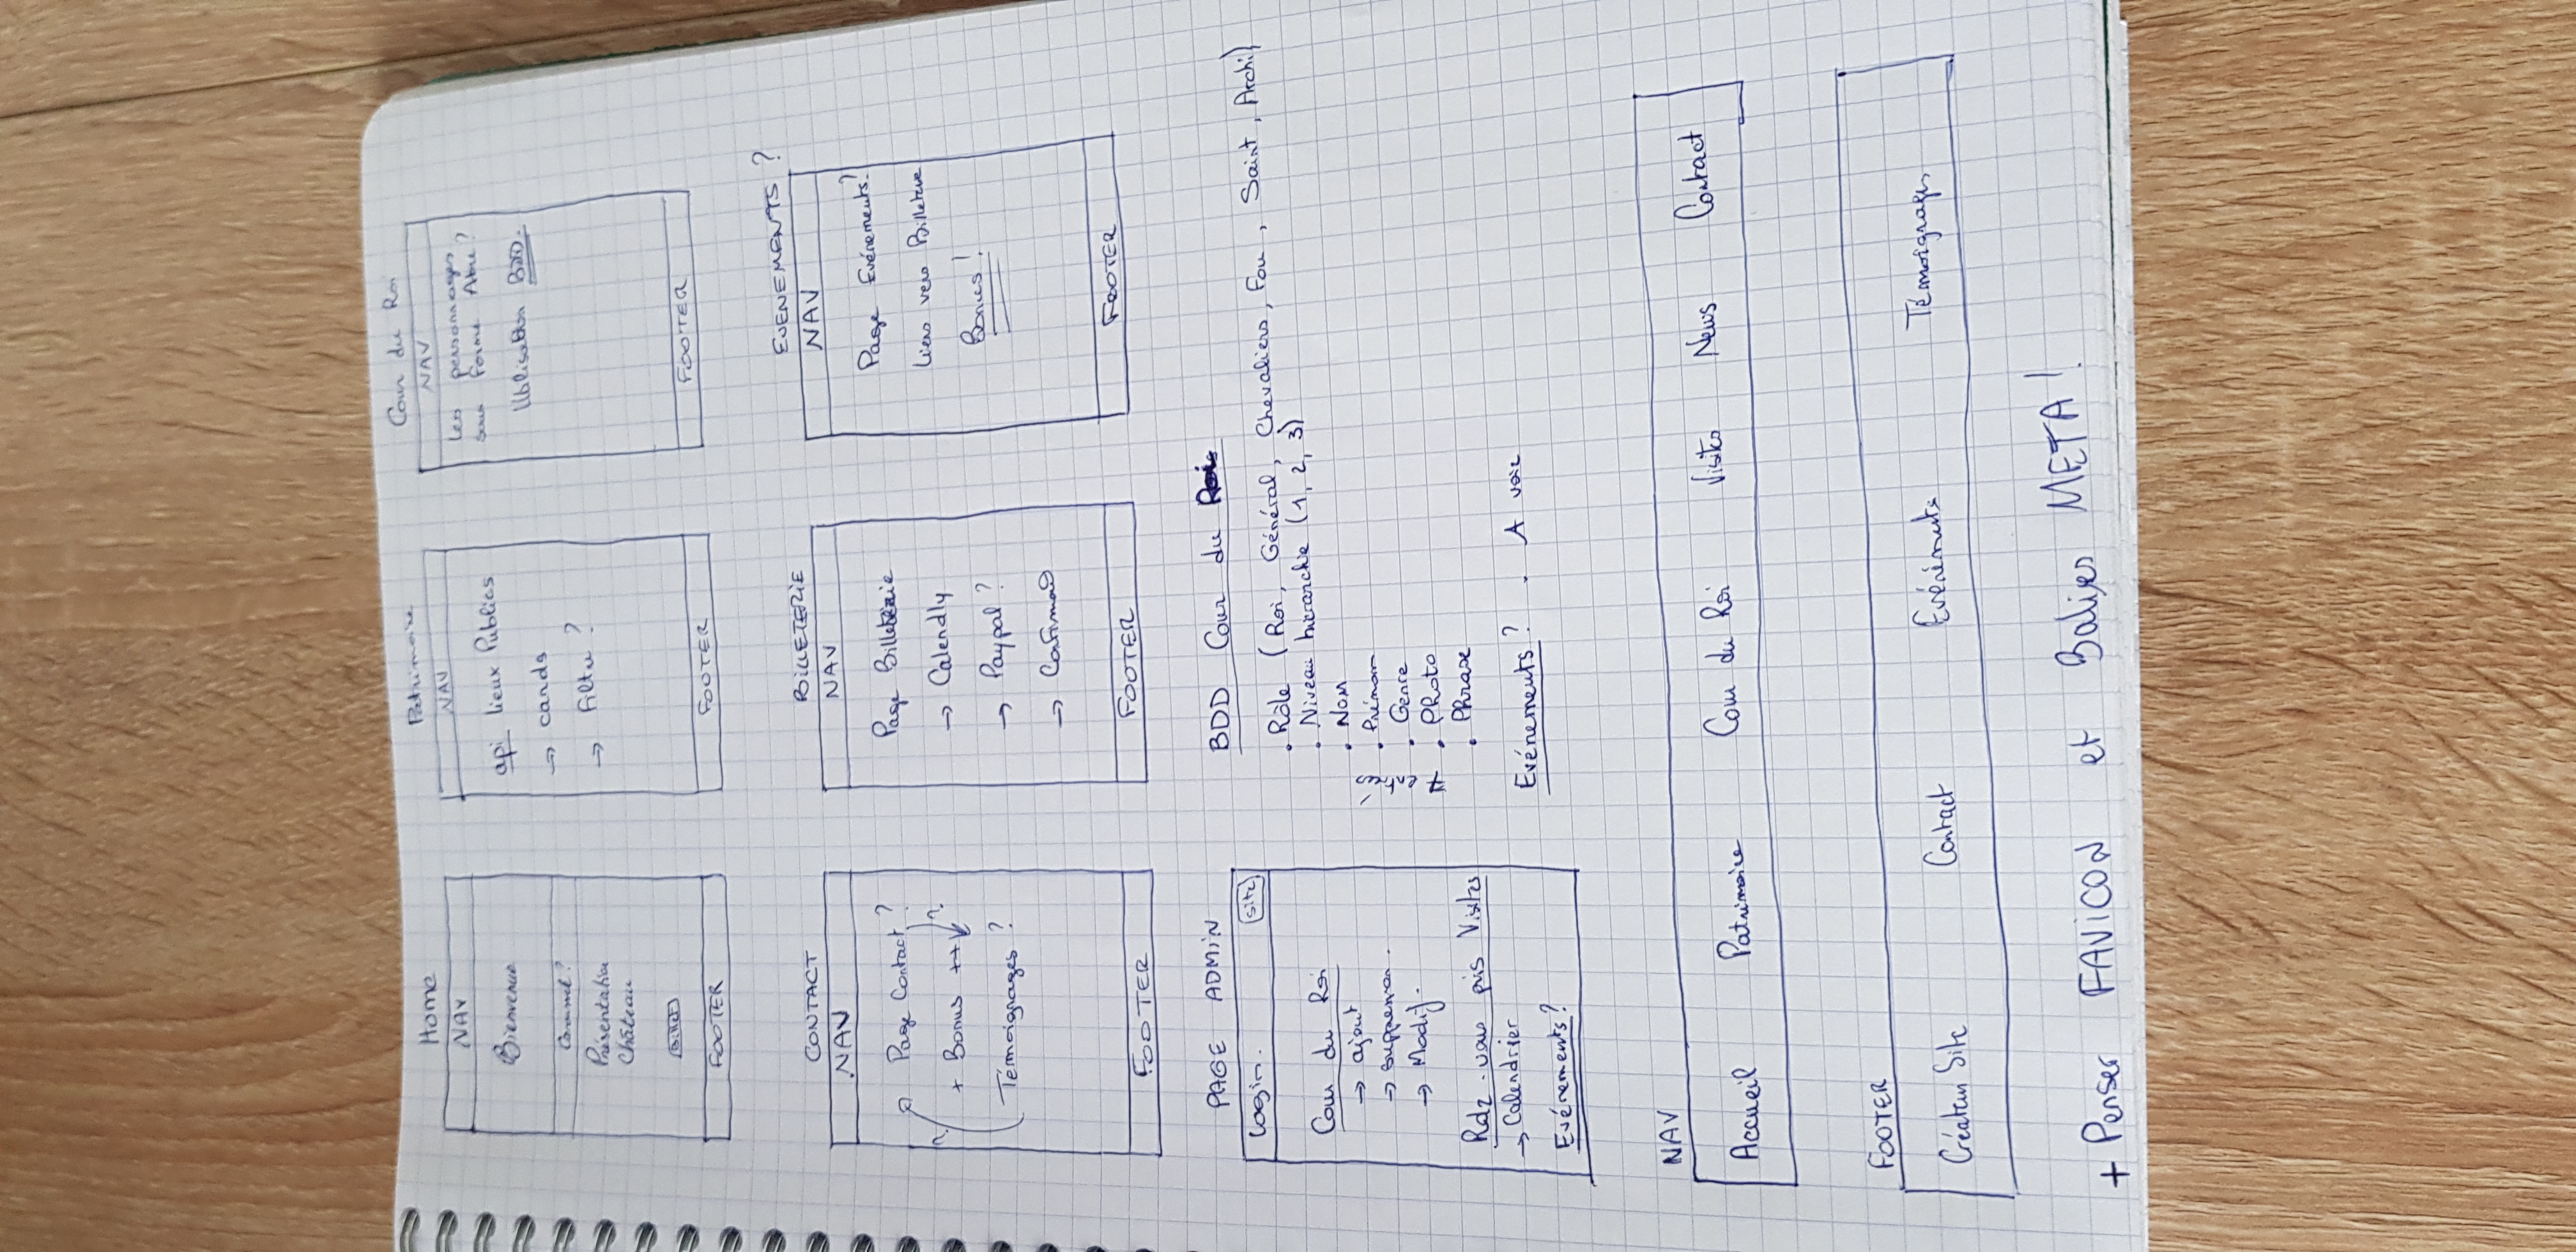 Home
NAV
Bienvenue
Carousel?
Présentation
Château
Billet
FOOTER
Patrimoire
NAV
api lieux Publics
→ cards
→ Filtre ?
FOOTER
Cour du Roi
NAV
Les personnages
sous forme Abre ?
Utilisation BDD.
FOOTER
CONTACT
NAV
Page Contact ?
+ Bonus ++ ?
?
Témoignages ?
FOOTER
BILLETERIE
NAV
Page Billeterie
→ Calendly
→ Paypal ?
→ Confirmao
FOOTER
EVENEMENTS ?
NAV
Page Evénements?
liens vers Billeterie
Bonus !
FOOTER
PAGE ADMIN
Login. Site
Cour du Roi
→ ajout
→ suppression.
→ Modif.
Rdz-vous pris Visites
→ Calendrier
Evénements?
BDD Cour du Rois
. Rôle (Roi, Général, Chevaliers, Fou, Saint, Archi)
. Niveau hierarchie (1, 2, 3)
. Nom
. Prénom
. Genre
. Photo
. Phrase
7 entrées
Evénements ? . A voir
NAV
Accueil Patrimoire Cour du Roi Visites News Contact
FOOTER
Créateur Site Contact Evénements Témoignages
+ Penser FAVICON et Balises META !